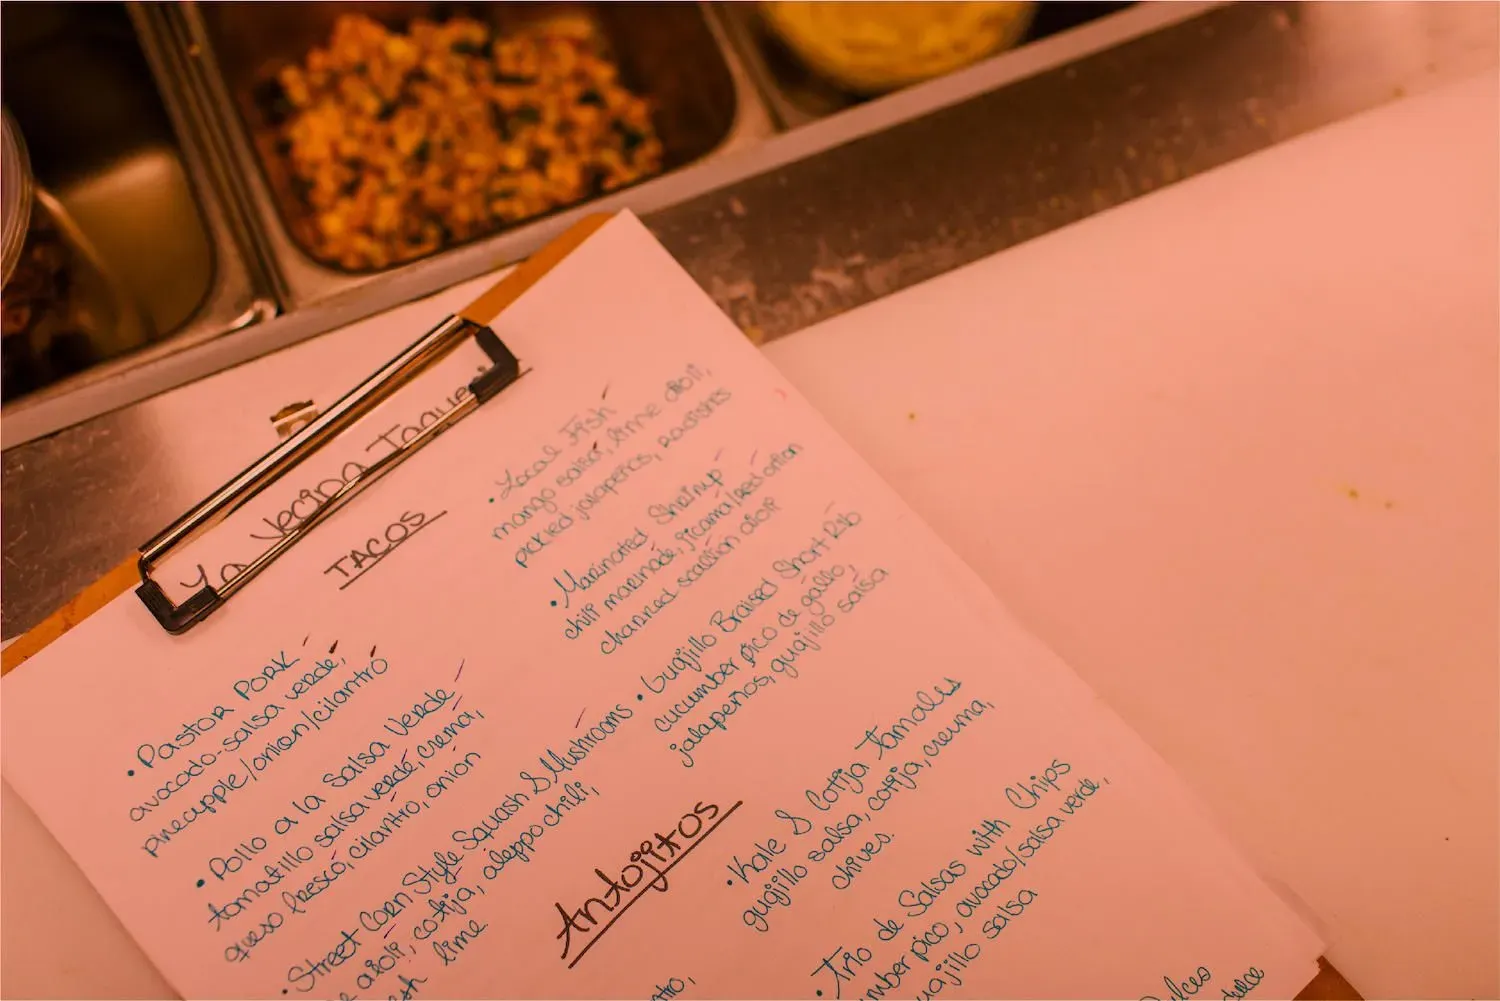 La Vecina Taque
TACOS
• Pastor Pork
avocado-salsa verde,
pineapple/onion/cilantro
• Pollo a la Salsa Verde
tomatillo salsa verde, crema,
queso fresco, cilantro, onion
• Street Corn Style Squash & Mushrooms
aioli, cotija, aleppo chili,
lime
• Local Fish
mango salsa, lime aioli,
pickled jalapeños, radishes
• Marinated Shrimp
chili marinade, jicama/red onion
charred scallion aioli
• Guajillo Braised Short Rib
cucumber pico de gallo,
jalapeños, guajillo salsa
Antojitos
• Kale & Cotija Tamales
guajillo salsa, cotija, crema,
chives.
• Trio de Salsas with Chips
pico, avocado/salsa verde,
salsa